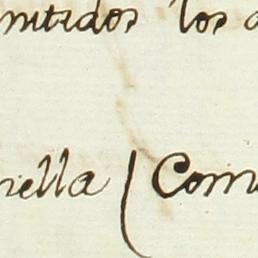 mitidos los
nella / Com